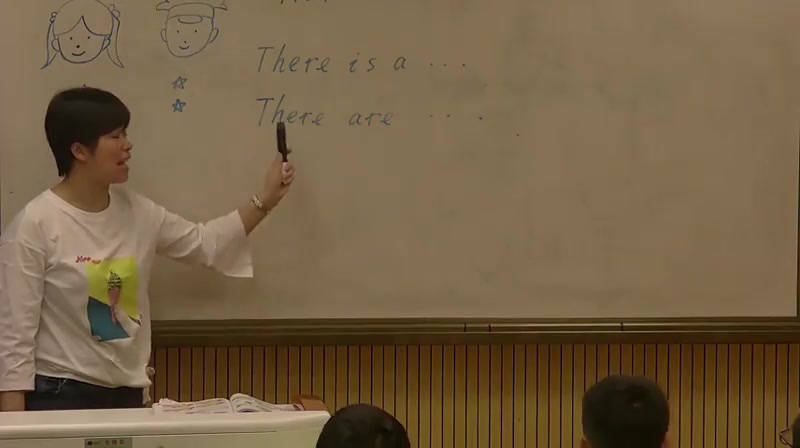 There is a ...
There are ...